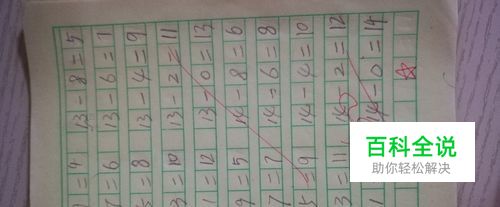 =4 13-8=5
=6 13-6=7
5=8 13-4=9
3=10 13-2=11
1=12 13-0=13
9=5 14-8=6
7=7 14-6=8
5=9 14-4=10
3=11 14-2=12
14-0=14
百科全说
助你轻松解决